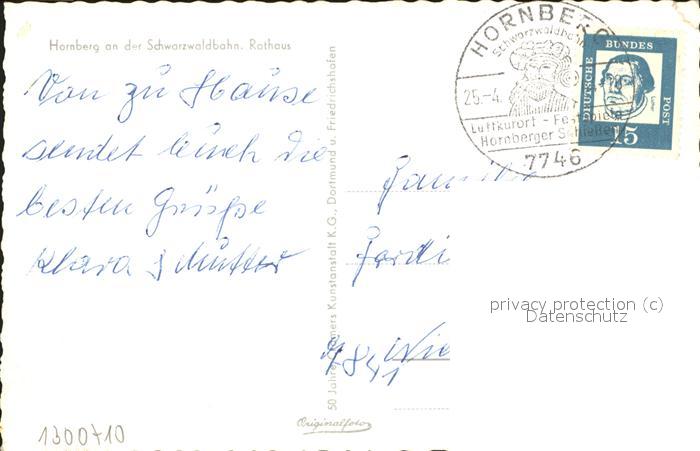 Hornberg an der Schwarzwaldbahn. Rathaus
Von zu Hause
sendet Euch die
besten Grüße
Klara & Mutter
50 Jahre Cramers Kunstanstalt K.G., Dortmund u. Friedrichshafen
Originalfoto
1300710
HORNBERG
Schwarzwaldbahn
25.-4.
Luftkurort - Festspiele
Hornberger Schießen
7746
DEUTSCHE
BUNDES
POST
Luther
15
Familie
Ferdi
Wie
privacy protection (c)
Datenschutz